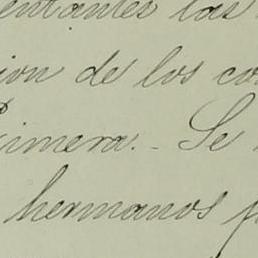 entantes las
ion de los co
rimera. - Se
hermanos f